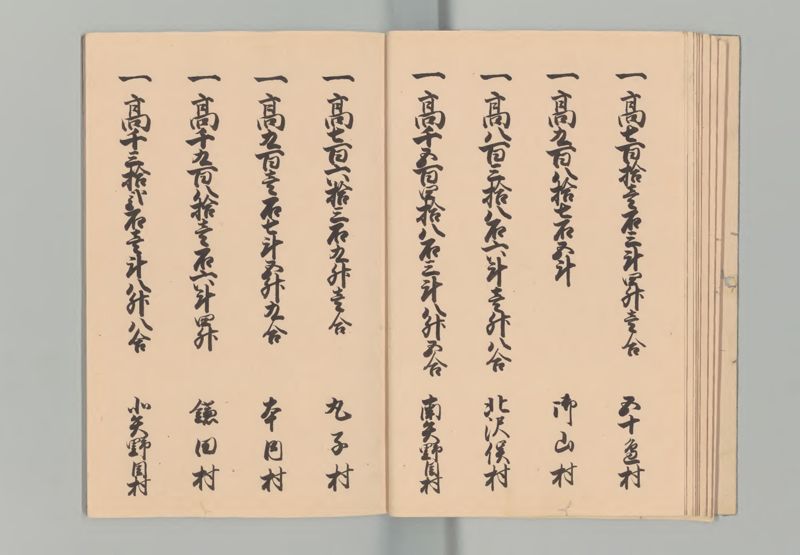 一高七百拾壱石三斗四升壱合 五十邉村
一高九百八拾七石五斗 御山村
一高八百三拾八石六斗壱升八合 北沢俣村
一高千五百四拾八石三斗八升五合 南矢野目村
一高七百六拾三石九升壱合 丸子村
一高九百壱石七斗五升九合 本内村
一高千九百八拾壱石六斗四升 鎌田村
一高千三拾弐石壱斗八升八合 北矢野目村